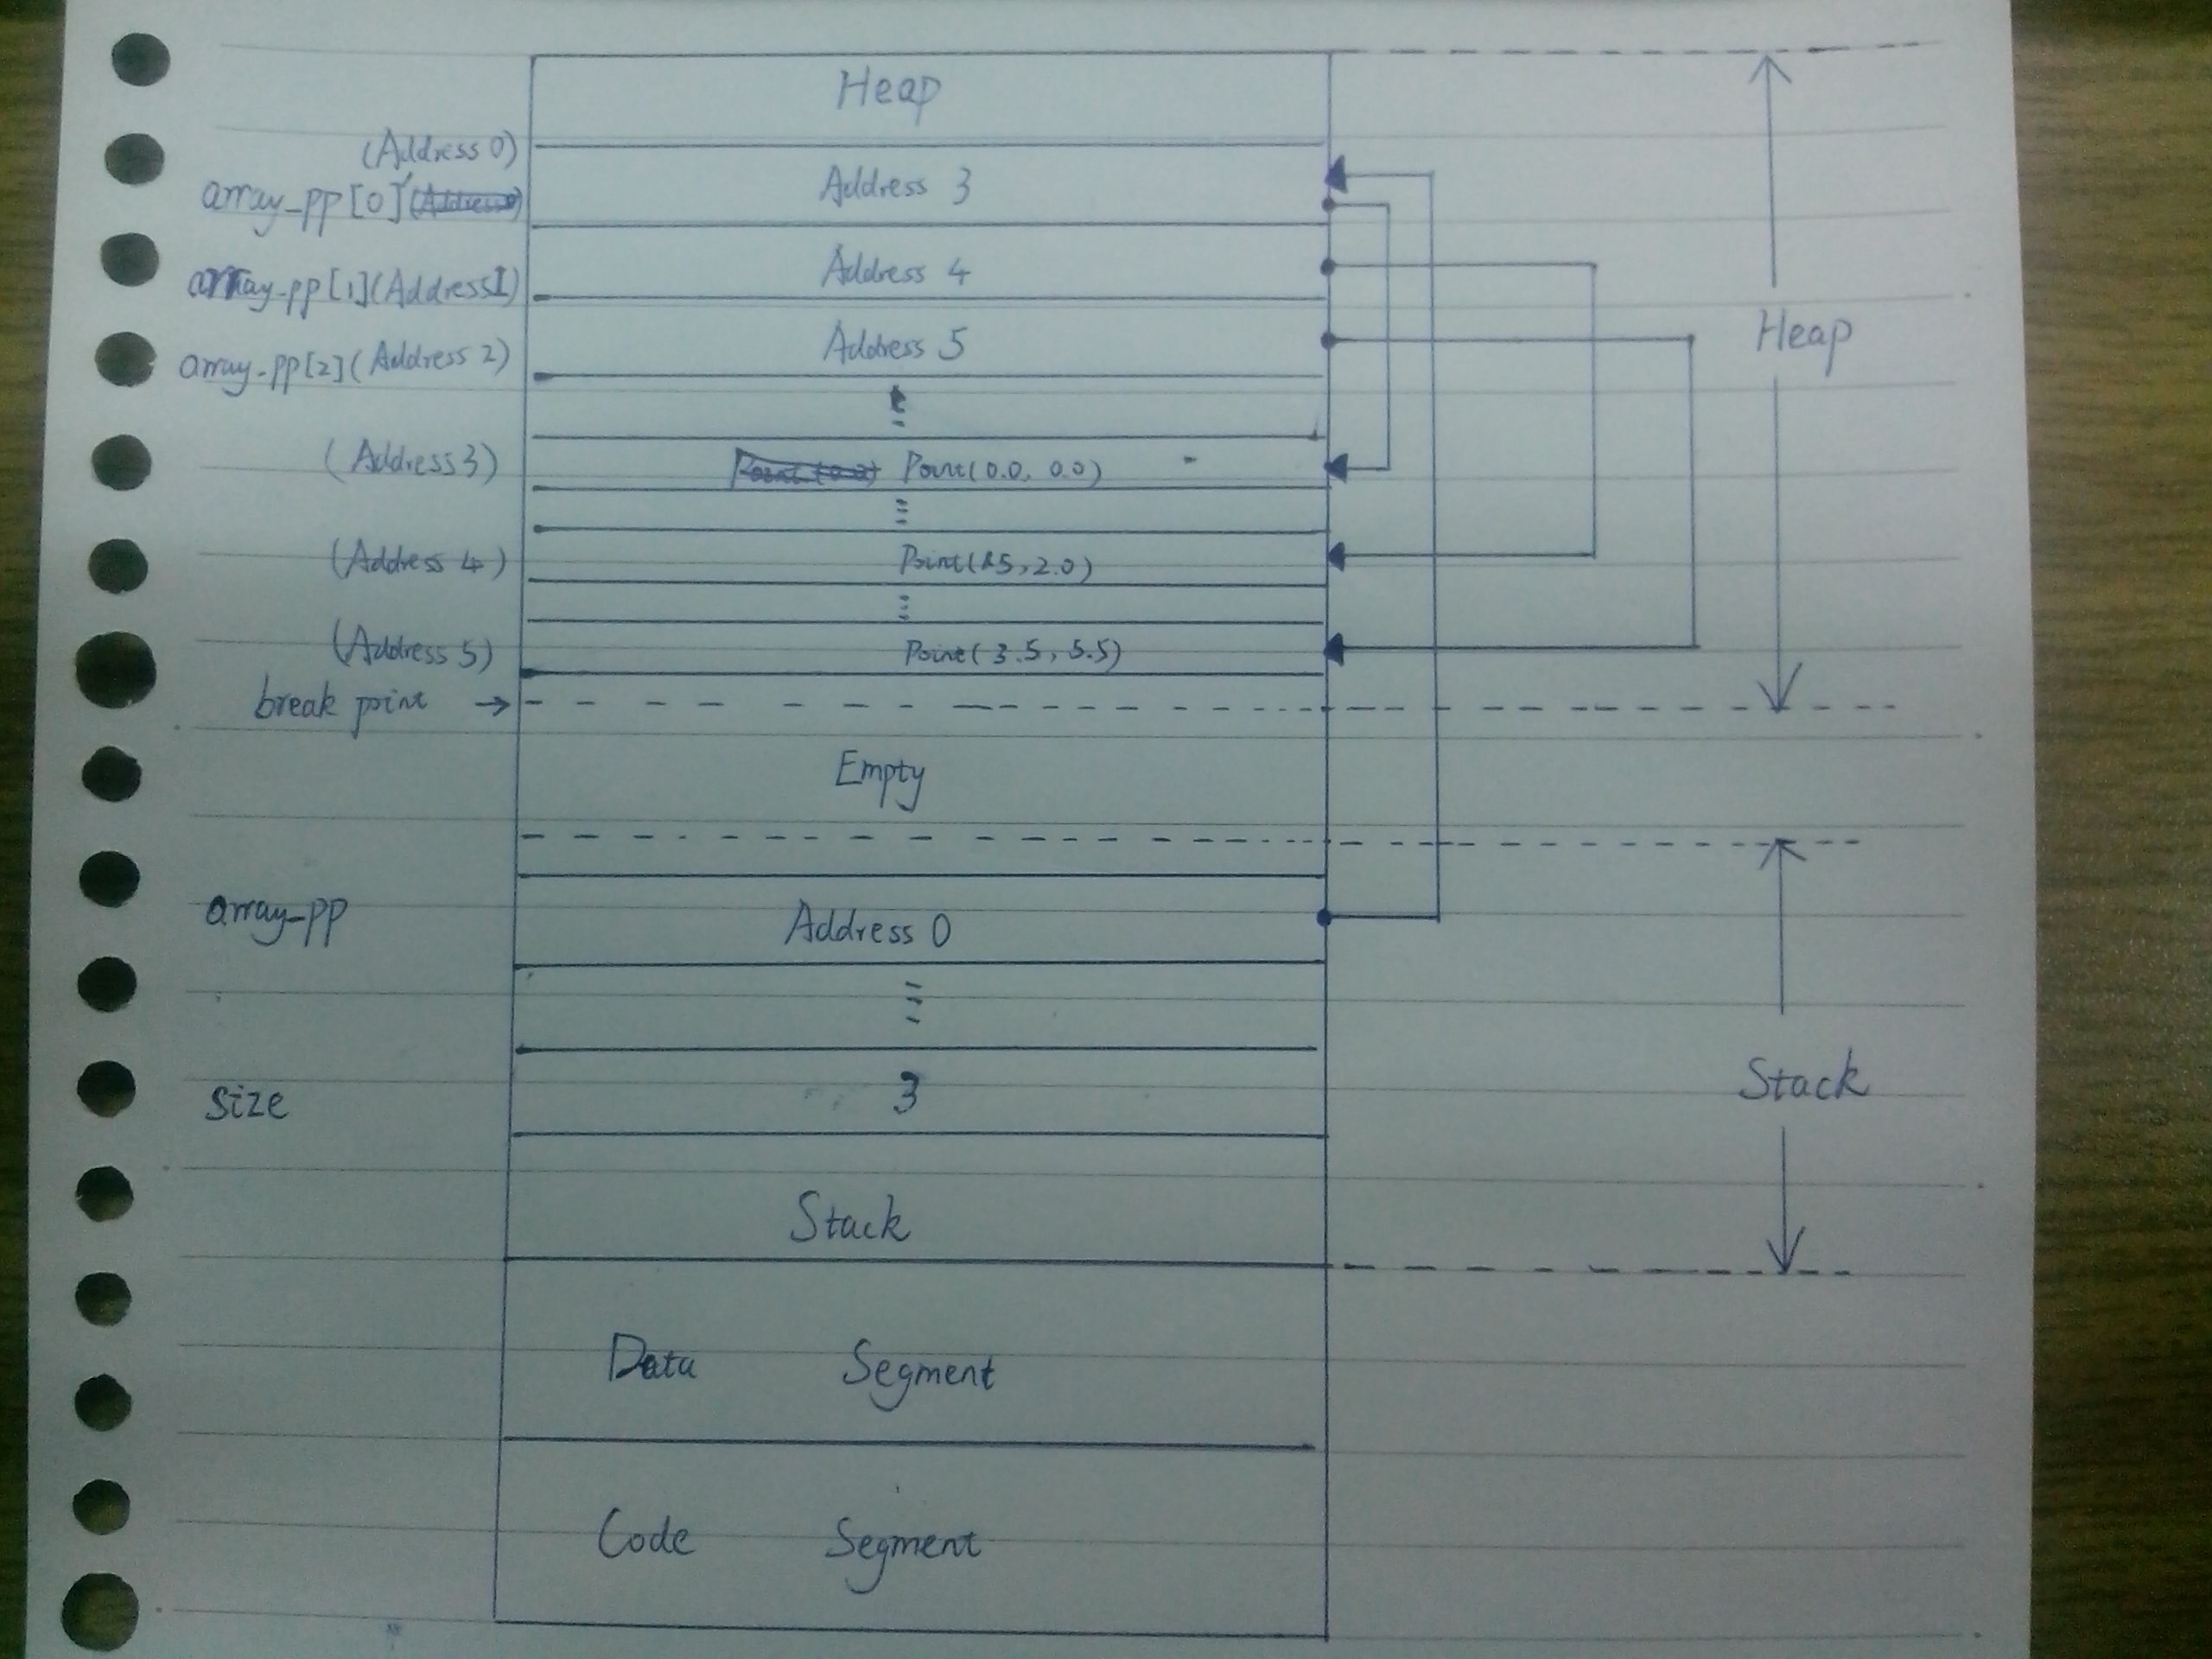 Heap
(Address 0)
array_pp[0] Address 3
array_pp[1](Address1) Address 4
Heap
array_pp[2](Address 2) Address 5
(Address 3) Point(0.0, 0.0)
(Address 4) Point(1.5, 2.0)
(Address 5) Point(3.5, 5.5)
break point →
Empty
array_pp Address 0
size 3 Stack
Stack
Data Segment
Code Segment